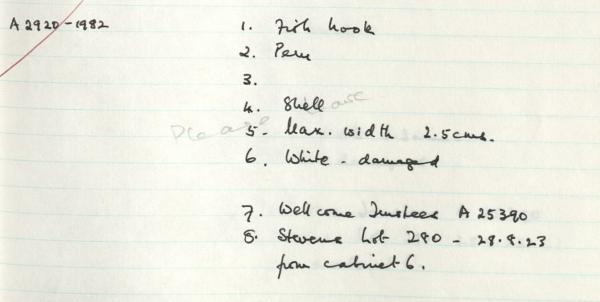 A 2920-1982
1. Fish hook
2. Peru
3.
4. Shell
Please
5. Max. width 2.5cms.
6. White - damaged
7. Wellcome Trustees A 25390
8. Stevens Lot 280 - 28.8.23
from cabinet 6.